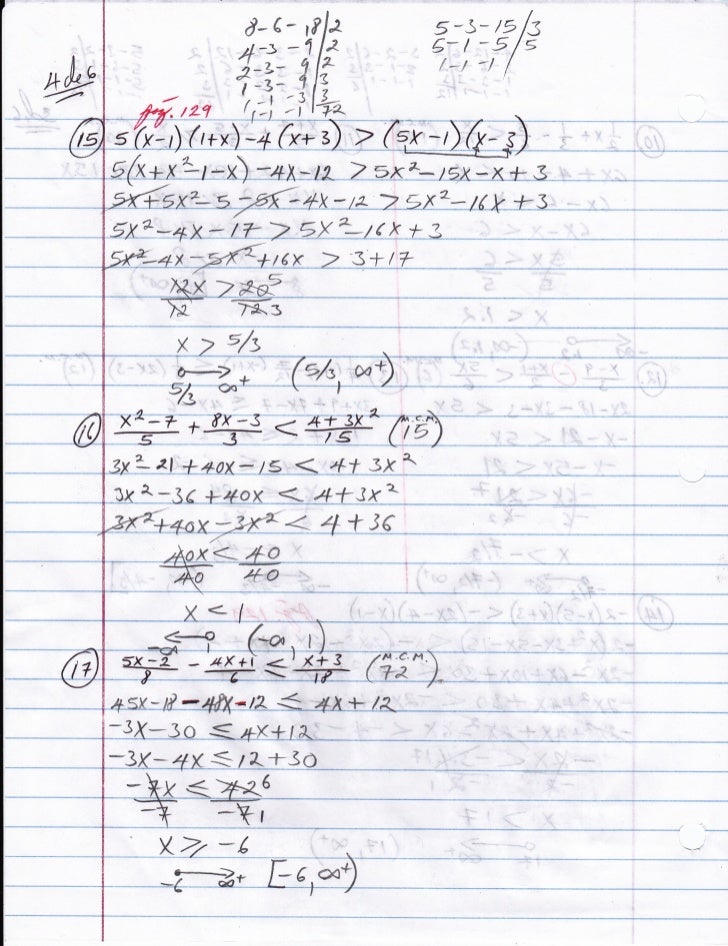 8-6-18|2
4-3-9|2
2-3-9|2
1-3-9|3
1-1-3|3
1-1-1|72
5-3-15|3
5-1-5|5
1-1-1
4 de 6
pág. 129
15) 5(x-1)(1+x)-4(x+3) > (5x-1)(x-3)
5(x+x²-1-x)-4x-12 > 5x²-15x-x+3
5x+5x²-5-5x-4x-12 > 5x²-16x+3
5x²-4x-17 > 5x²-16x+3
5x²-4x-5x²+16x > 3+17
12x/12 > 20 5/12 3
x > 5/3
5/3 ∞+ (5/3, ∞+)
16) x²-7/5 + 8x-3/3 < 4+3x²/15 (M.C.M. 15)
3x²-21+40x-15 < 4+3x²
3x²-36+40x < 4+3x²
3x²+40x-3x² < 4+36
40x/40 < 40/40
x < 1
-∞ 1 (-∞, 1)
17) 5x-2/8 - 4x+1/6 ≤ x+3/18 (M.C.M. 72)
45x-18-48x-12 ≤ 4x+12
-3x-30 ≤ 4x+12
-3x-4x ≤ 12+30
-7x/-7 ≤ 42 6/-7 1
x ≥ -6
-6 ∞+ [-6, ∞+)